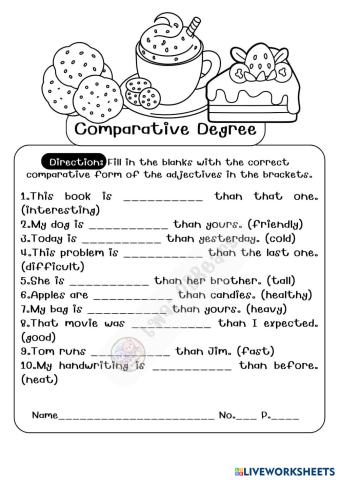 Comparative Degree
Direction: Fill in the blanks with the correct
comparative form of the adjectives in the brackets.
1.This book is __________ than that one.
(interesting)
2.My dog is __________ than yours. (friendly)
3.Today is __________ than yesterday. (cold)
4.This problem is __________ than the last one.
(difficult)
5.She is __________ than her brother. (tall)
6.Apples are __________ than candies. (healthy)
7.My bag is __________ than yours. (heavy)
8.That movie was __________ than I expected.
(good)
9.Tom runs __________ than Jim. (fast)
10.My handwriting is __________ than before.
(neat)
Name____________________ No.___ P.____
LIVEWORKSHEETS